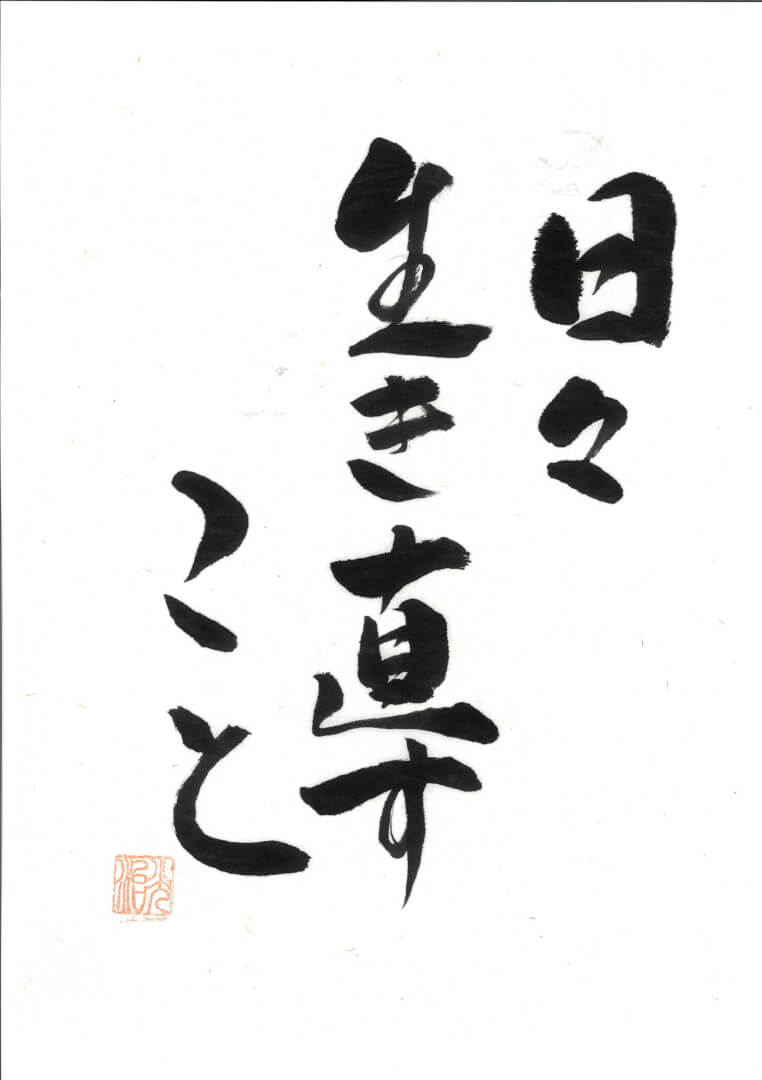 日々
生き直す
こと